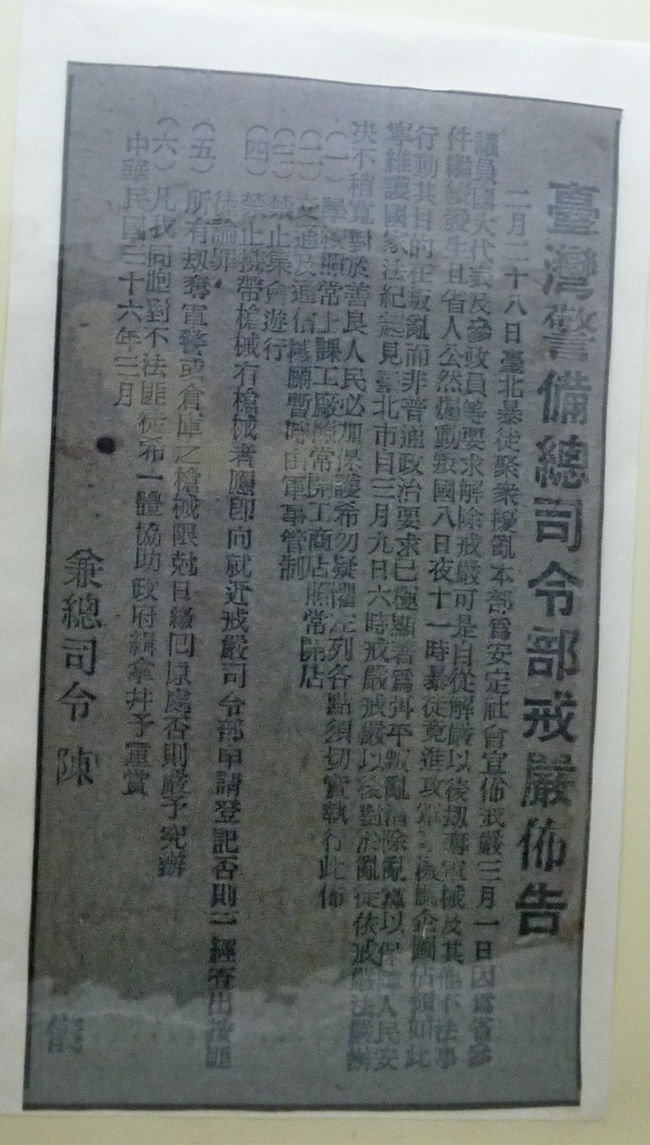 臺灣警備總司令部戒嚴佈告
二月二十八日臺北暴徒聚衆擾亂本部爲安定社會宣佈戒嚴三月一日因爲省參
議員國大代表及參政員等要求解除戒嚴可是自從解嚴以後刼奪軍械及其他不法事
件繼續發生且省人公然煽動叛國八日夜十一時暴徒竟進攻軍 機關企圖佔領如此
行動其目的在叛亂而非普通政治要求已極顯著爲弭平叛亂消除亂黨以保障人民安
寧維護國家法紀起見臺北市自三月九日六時戒嚴戒嚴以後對於亂徒依戒嚴法嚴辦
决不稍寬對於善良人民必加保護希勿疑懼左列各點須切實執行此佈
(一)學校照常上課工廠照常開工商店照常開店
(二)交通及通信機關暫時由軍事管制
(三)禁止集會遊行
(四)禁止携帶槍械有槍械者應卽向就近戒嚴司令部申請登記否則一經查出按匪
徒論罪
(五)所有刼奪軍警或倉庫之槍械限尅日繳回原處否則嚴予究辦
(六)凡我同胞對不法匪徒希一體協助政府緝拿幷予重賞
中華民國三十六年三月
兼總司令 陳 儀